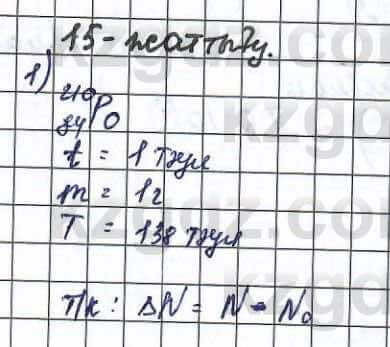 15-жаттығу.
1)
²¹⁰₈₄Po
t = 1 тәул
m = 1г
T = 138 тәул
Т/к: ΔN = N - N₀
kzgdz.com